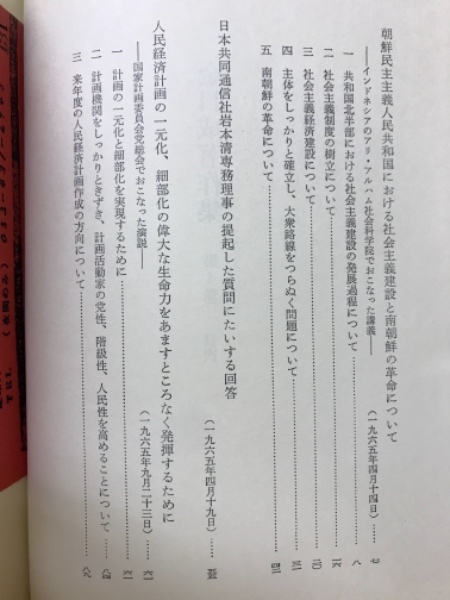 朝鮮民主主義人民共和国における社会主義建設と南朝鮮の革命について
――インドネシアのアリ・アルハム社会科学院でおこなった講義――
(一九六五年四月十四日)……七
一 共和国北半部における社会主義建設の発展過程について……八
二 社会主義制度の樹立について……一六
三 社会主義経済建設について……二〇
四 主体をしっかりと確立し、大衆路線をつらぬく問題について……三一
五 南朝鮮の革命について……四三
日本共同通信社岩本清専務理事の提起した質問にたいする回答
(一九六五年四月十九日)……五五
人民経済計画の一元化、細部化の偉大な生命力をあますところなく発揮するために
――国家計画委員会党総会でおこなった演説――
(一九六五年九月二十三日)……六一
一 計画の一元化と細部化を実現するために……六一
二 計画機関をしっかりときずき、計画活動家の党性、階級性、人民性を高めることについて……八四
三 来年度の人民経済計画作成の方向について……八九